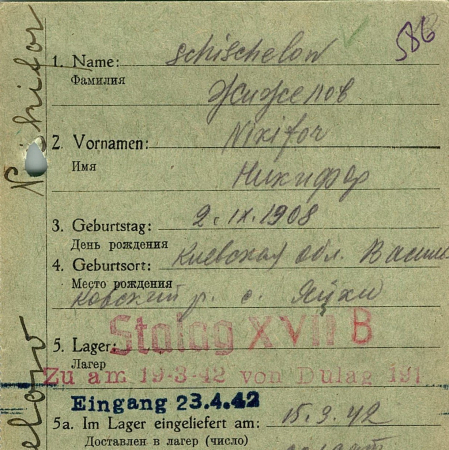 586
1. Name: Schischelow
Фамилия
Жижелов
2. Vornamen: Nikifor
Имя
Никифор
3. Geburtstag: 2.IX.1908
День рождения
4. Geburtsort: Киевская обл. Василь
Место рождения
ковский р. с. Яцки
5. Lager: Stalag XVII B
Лагер
Zu am 19-3-42 von Dulag 191
Eingang 23.4.42
5a. Im Lager eingeliefert am: 15.3.42
Доставлен в лагер (число)